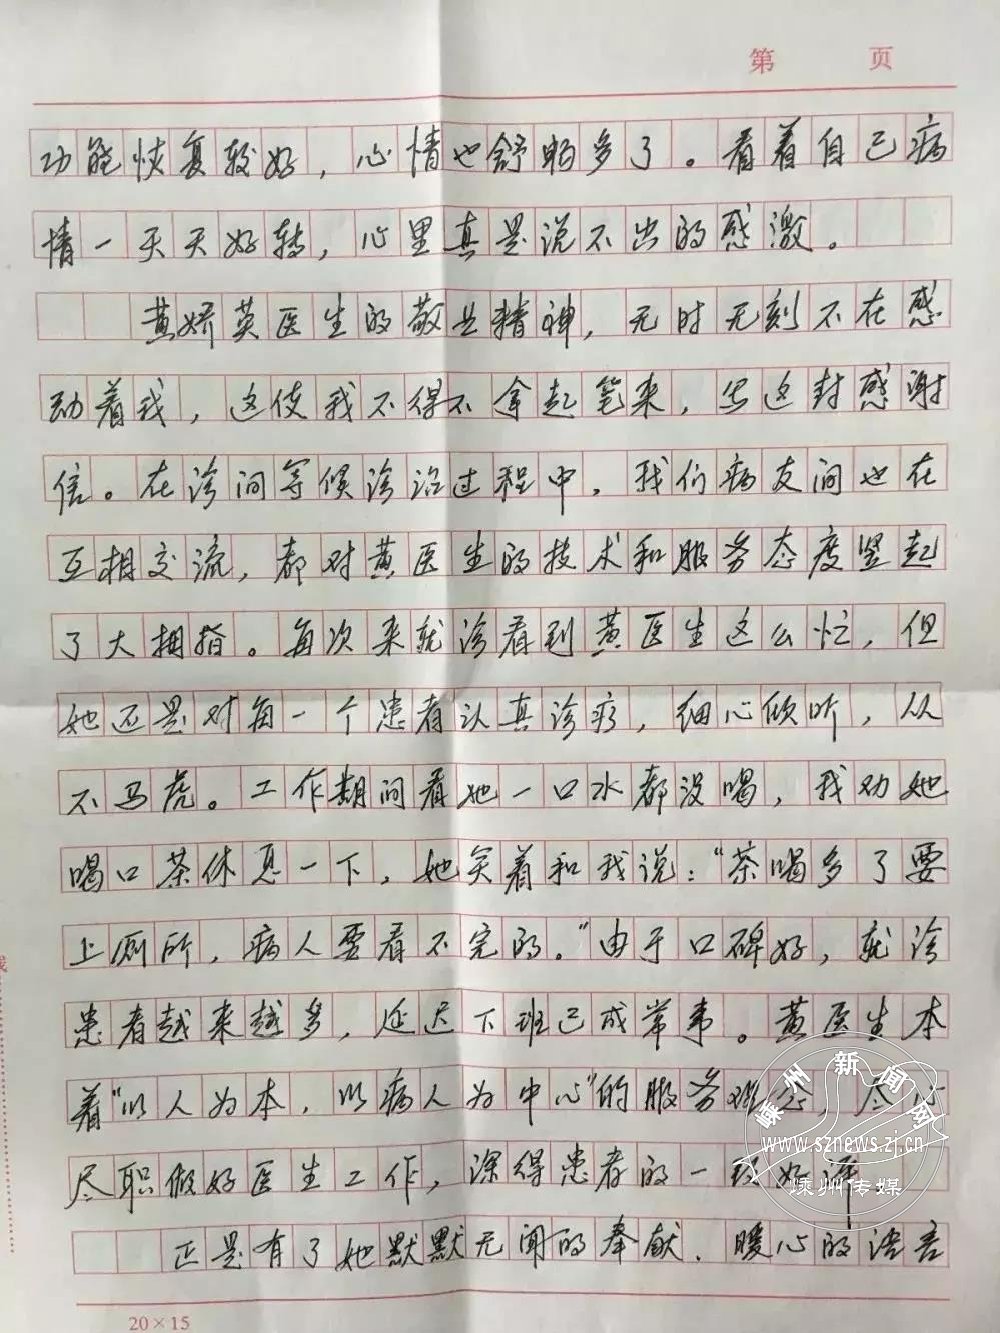 第 页
功能恢复较好，心情也舒畅多了。看着自己病
情一天天好转，心里真是说不出的感激。
黄娇英医生的敬业精神，无时无刻不在感
动着我，这使我不得不拿起笔来，写这封感谢
信。在诊间等候诊治过程中，我们病友间也在
互相交流，都对黄医生的技术和服务态度竖起
了大拇指。每次来就诊看到黄医生这么忙，但
她还是对每一个患者认真诊疗，细心倾听，从
不马虎。工作期间看她一口水都没喝，我劝她
喝口茶休息一下，她笑着和我说：“茶喝多了要
上厕所，病人要看不完的。”由于口碑好，就诊
患者越来越多，延迟下班已成常事。黄医生本
着“以人为本，以病人为中心”的服务理念，尽心
尽职做好医生工作，深得患者的一致好评。
正是有了她默默无闻的奉献，暖心的语言
20×15
嵊州新闻网
www.sznews.zj.cn
嵊州传媒